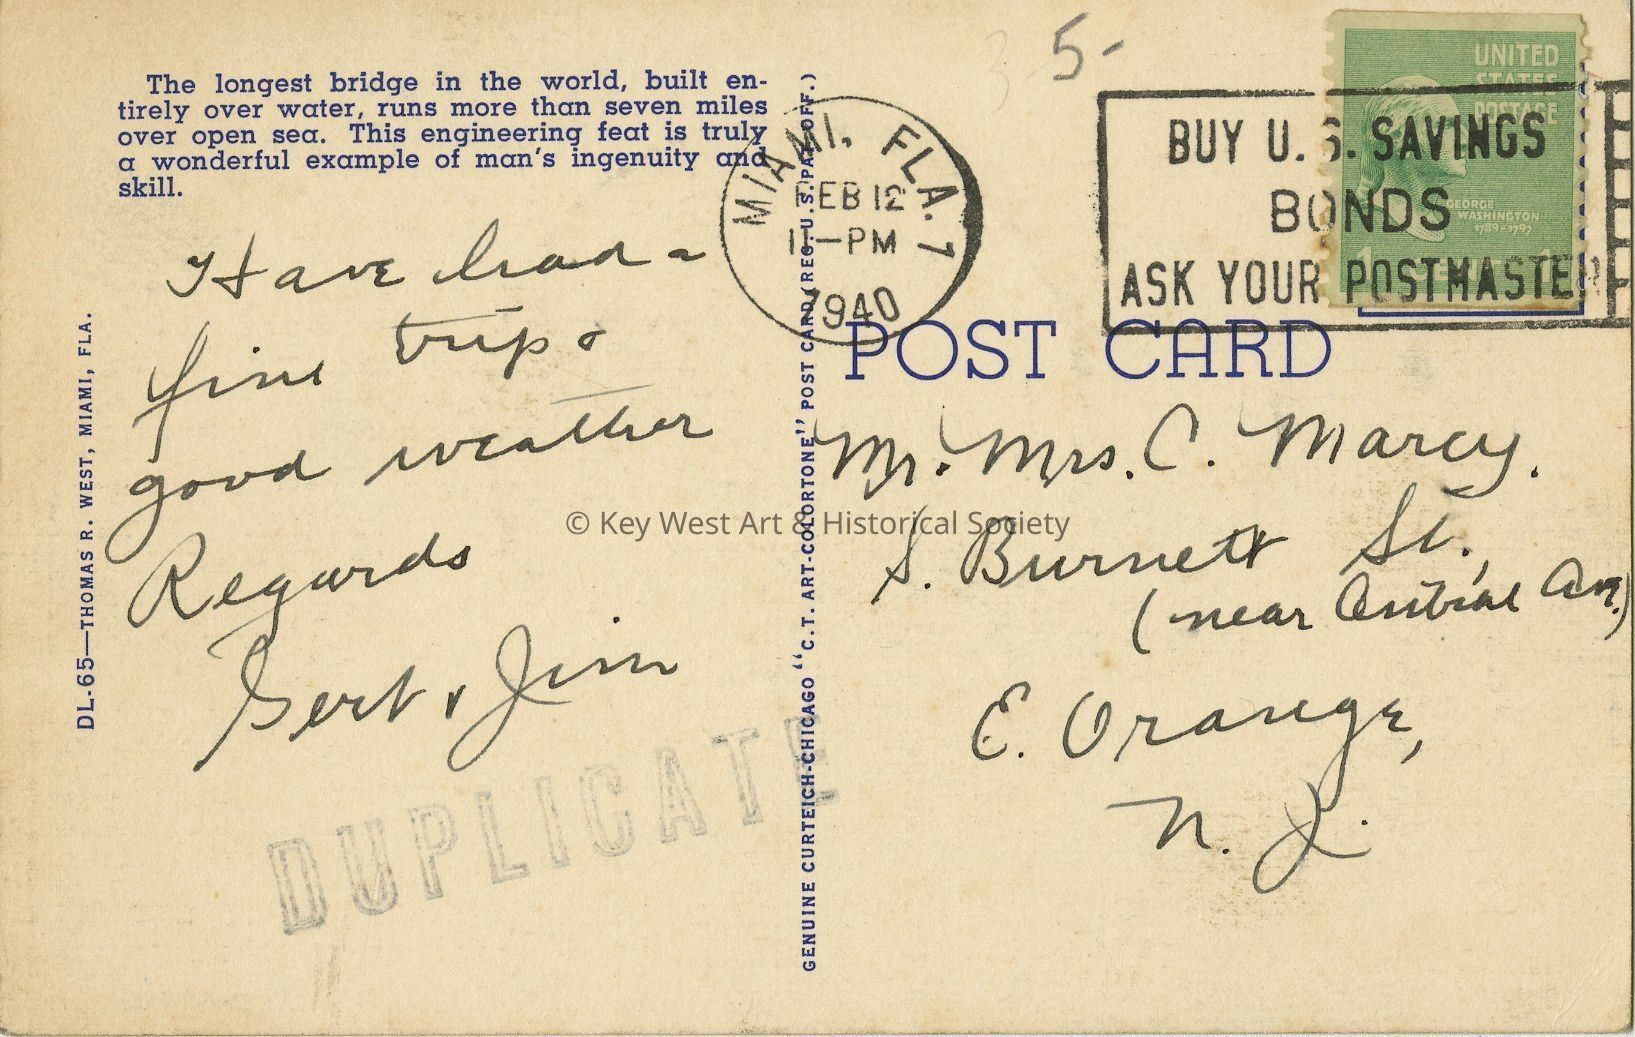 The longest bridge in the world, built en-
tirely over water, runs more than seven miles
over open sea. This engineering feat is truly
a wonderful example of man's ingenuity and
skill.
Have had a
fine trip &
good weather
Regards
Gert & Jim
DL-65—THOMAS R. WEST, MIAMI, FLA.
DUPLICATE
GENUINE CURTEICH-CHICAGO "C.T. ART-COLORTONE" POST CARD (REG. U.S. PAT. OFF.)
5-
MIAMI, FLA. 7
FEB 12
11-PM
1940
BUY U.S. SAVINGS
BONDS
ASK YOUR POSTMASTER
UNITED
STATES
POSTAGE
GEORGE
WASHINGTON
1789-1797
1 1
POST CARD
Mr. Mrs. C. Marcy.
S. Burnett St.,
(near Central Av.)
E. Orange,
N. J.
© Key West Art & Historical Society